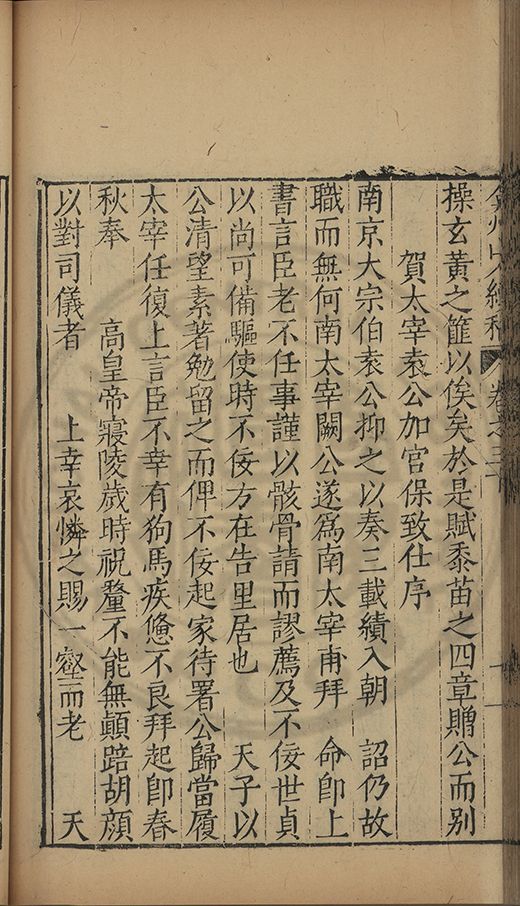 弇州山人續稿 卷之三十
操玄黃之篚以俟矣於是賦黍苗之四章贈公而別
賀太宰袁公加官保致仕序
南京大宗伯袁公抑之以奏三載績入朝 詔仍故
職而無何南太宰闕公遂爲南太宰甫拜 命卽上
書言臣老不任事謹以骸骨請而謬薦及不佞世貞
以尚可備驅使時不佞方在告里居也 天子以
公清望素著勉留之而俾不佞起家待署公歸當履
太宰任復上言臣不幸有狗馬疾憊不良拜起卽春
秋奉 高皇帝寢陵歲時祝釐不能無顛踣胡顔
以對司儀者 上幸哀憐之賜一壑而老 天